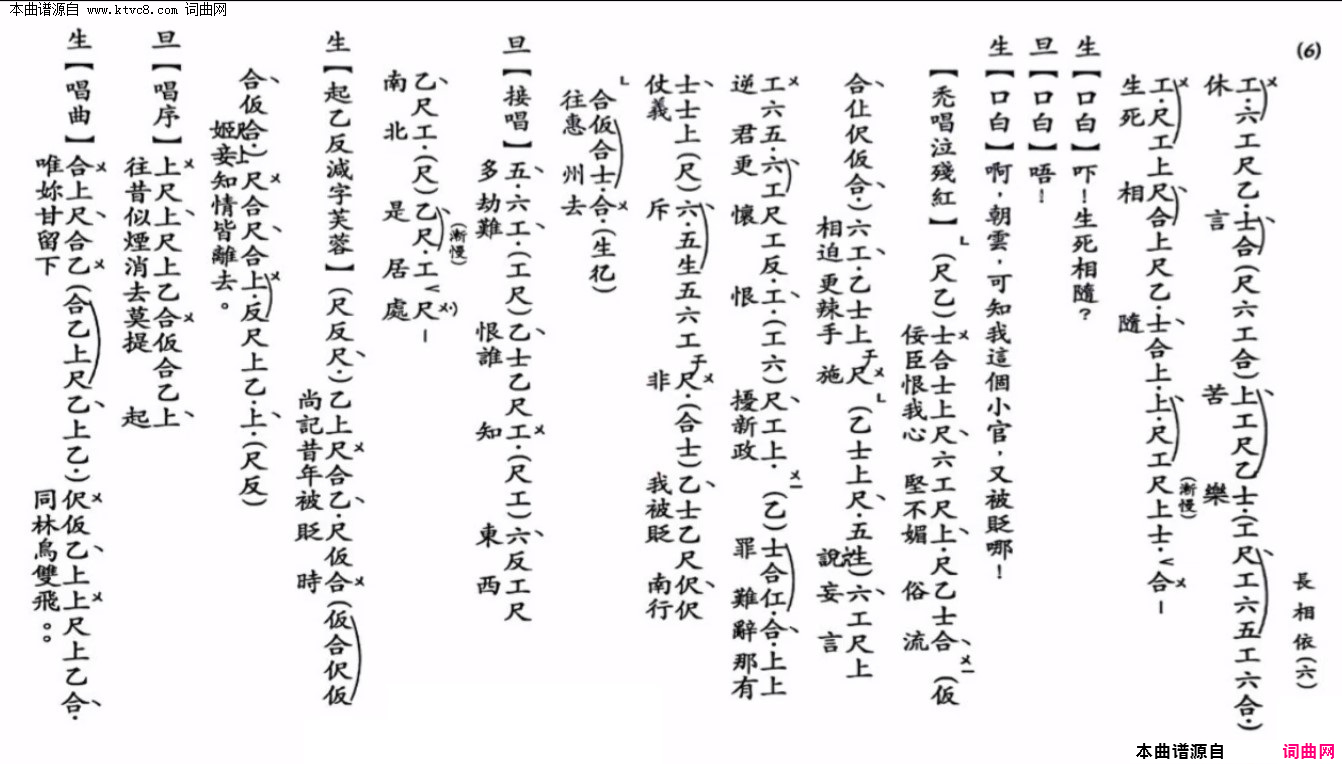 本曲谱源自 www.ktvc8.com 词曲网
(6)
長相依(六)
工．六工尺乙．士合(尺六工合)上工尺乙士．(工尺工六五工六合．)
休言苦樂
工．尺工上尺合上尺乙．士合上．上．尺工尺上士．合–
(漸慢)
生死相隨
生【口白】吓！生死相隨？
旦【口白】唔！
生【口白】啊，朝雲，可知我這個小官，又被貶哪！
【禿唱泣殘紅】(尺乙)士合士上尺六工尺上．尺乙士合(仮
佞臣恨我心堅不媚俗流
合仩伬仮合．)六工．乙士上尺(乙士上尺．五生)六工尺上
相迫更辣手施說妄言
工六五．六工尺工反．工．(工六)尺工上．(乙)士合仜．合．上上
逆君更懷恨擾新政罪難辭那有
士士上(尺)六．五生五六工尺．(合士)乙士乙尺伬伬
仗義斥非我被貶南行
合仮合士．合．(生忆)
往惠州去
旦【接唱】五．六工．(工尺)乙士乙尺工．(尺工)六反工尺
多劫難恨誰知東西
乙尺工．(尺)乙尺．工尺–
(漸慢)
南北是居處
生【起乙反減字芙蓉】(尺反尺．)乙上尺合乙．尺仮合(仮合伬仮
尚記昔年被貶時
合仮合．)尺合尺合上．反尺上乙．上．(尺反)
姬妾知情皆離去。
旦【唱序】上尺上尺上乙合仮合乙上
往昔似煙消去莫提起
生【唱曲】合上尺合乙(合乙上尺乙上乙．)伬仮乙上上尺上乙合．
唯妳甘留下同林鳥雙飛。。
本曲谱源自 词曲网